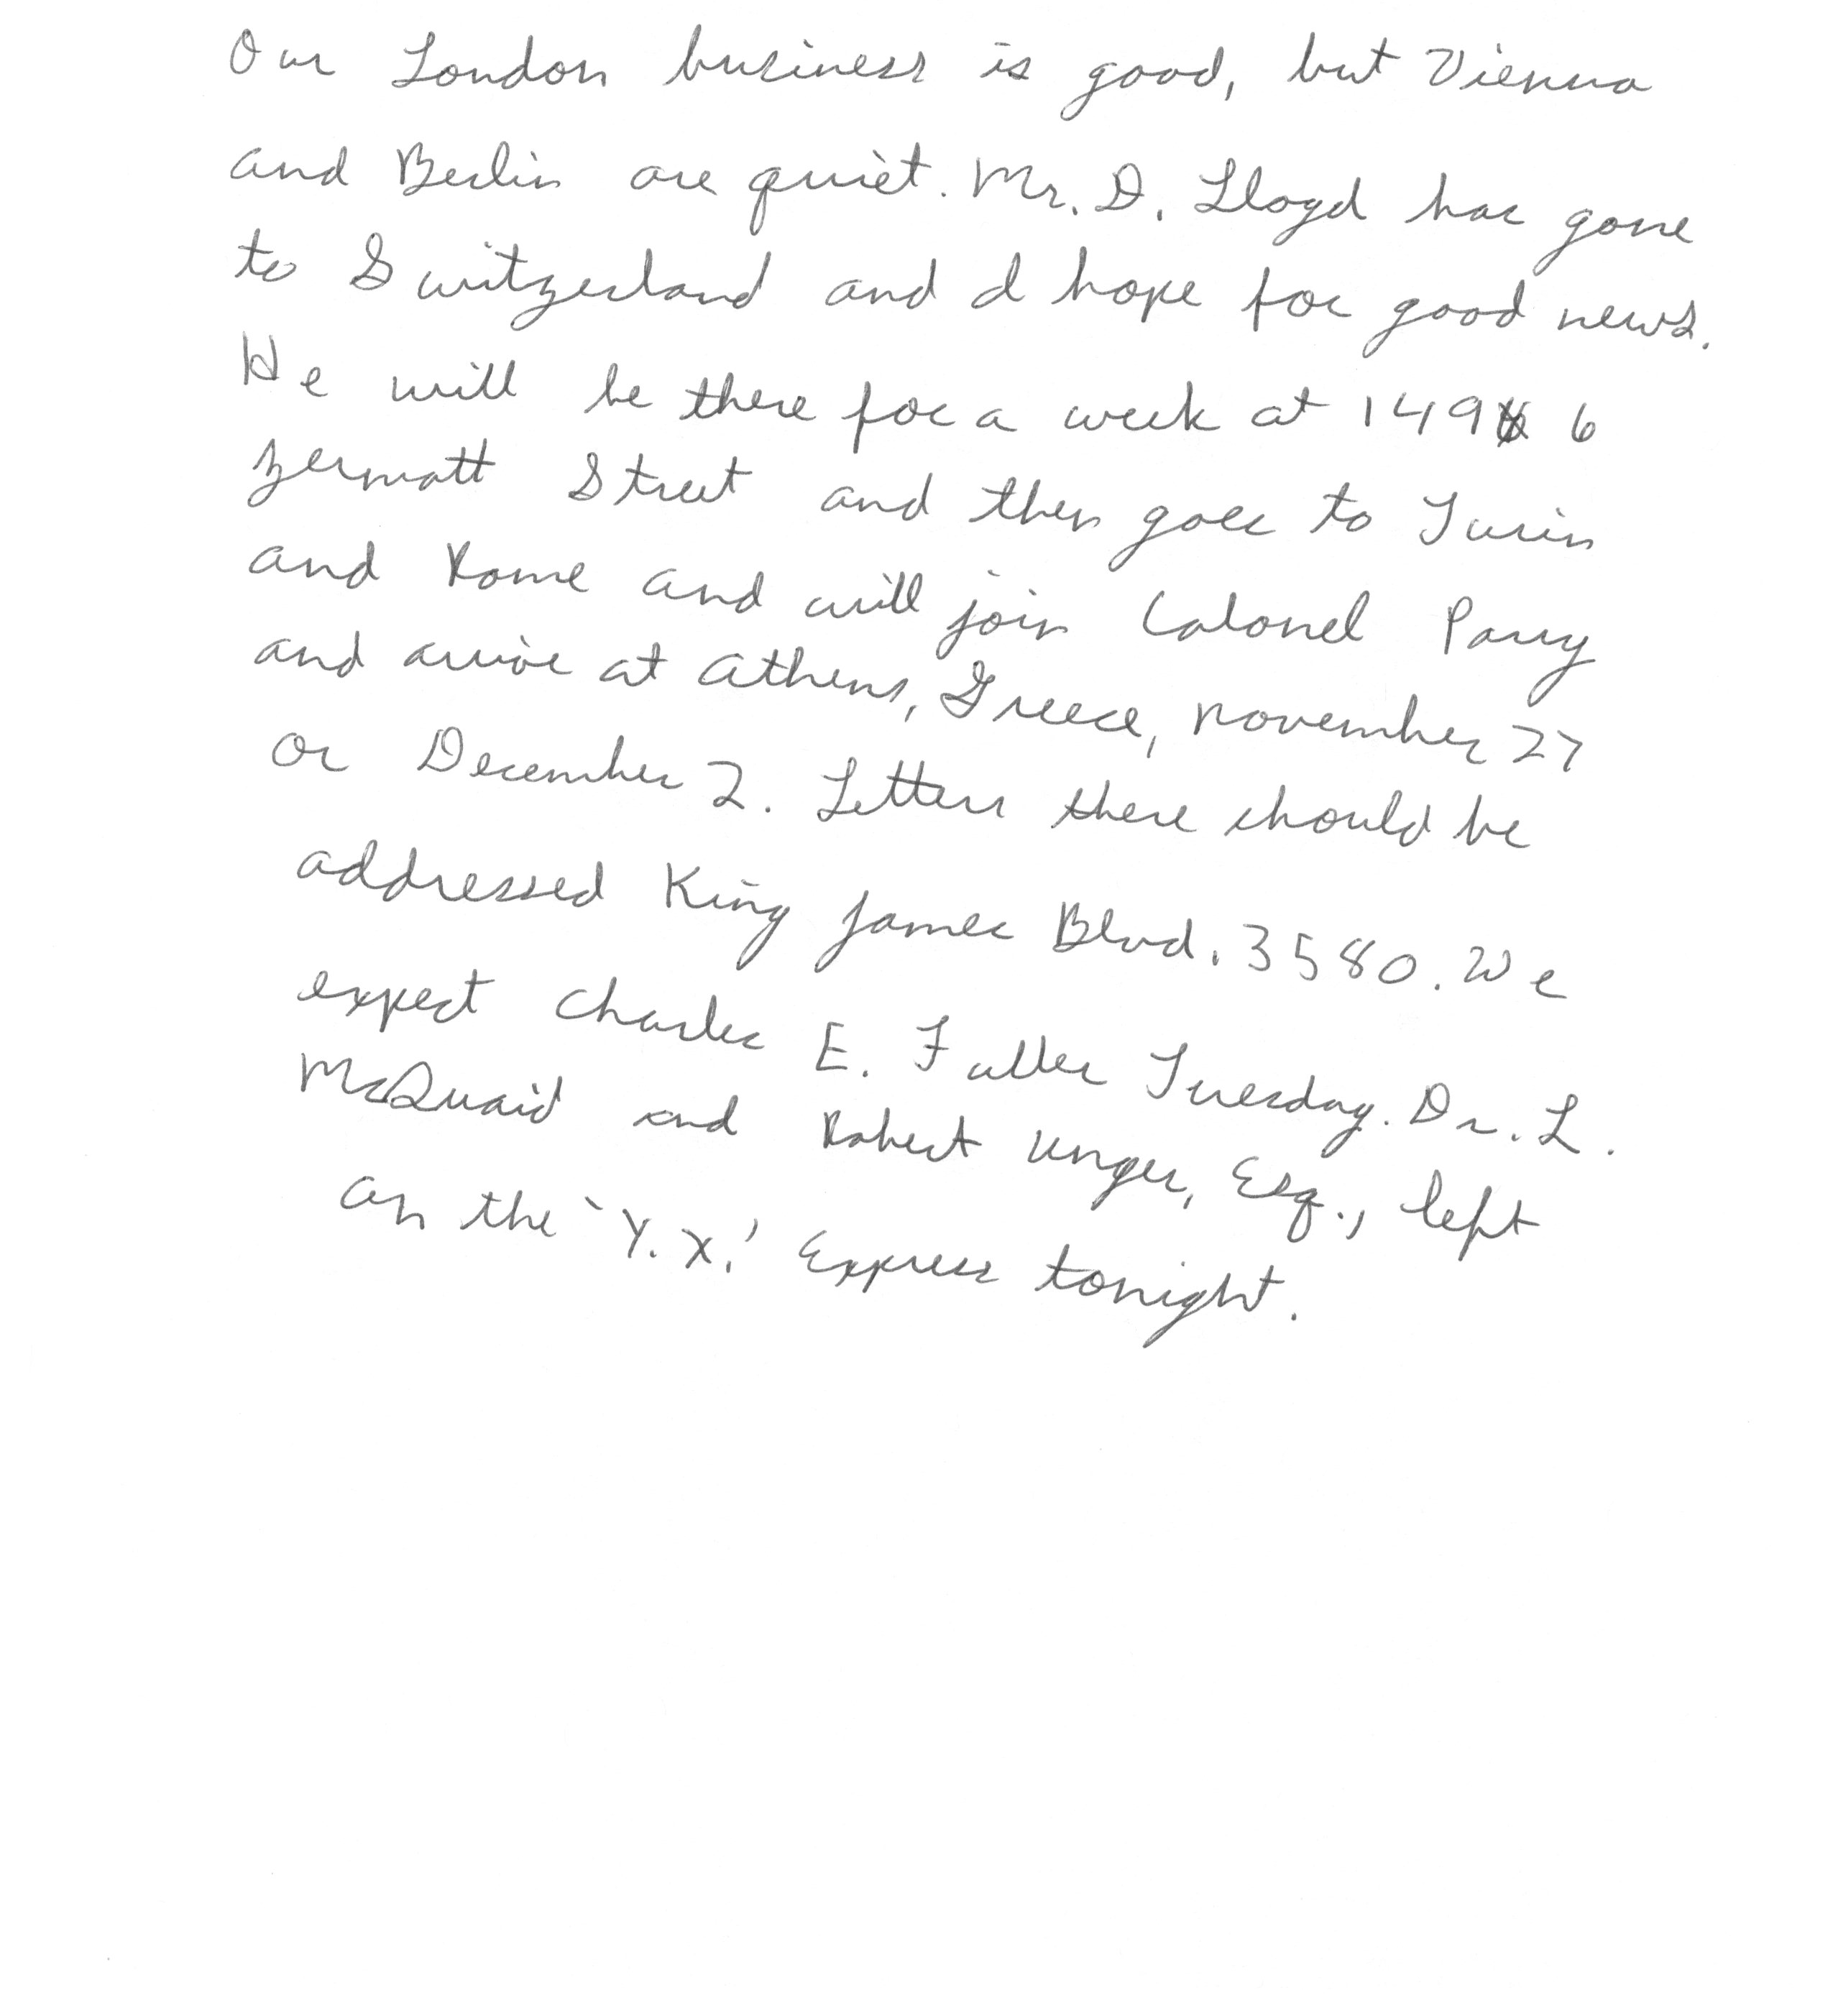 Our London business is good, but Vienna
and Berlin are quiet. Mr. D. Lloyd has gone
to Switzerland and I hope for good news.
He will be there for a week at 149 6
Zermatt Street and then goes to Turin
and Rome and will join Colonel Parry
and arrive at Athens, Greece, November 27
or December 2. Letters there should be
addressed King James Blvd. 3580. We
expect Charles E. Fuller Tuesday. Dr. L.
McQuaid and Robert Unger, Esq., left
on the 'Y.X.' Express tonight.